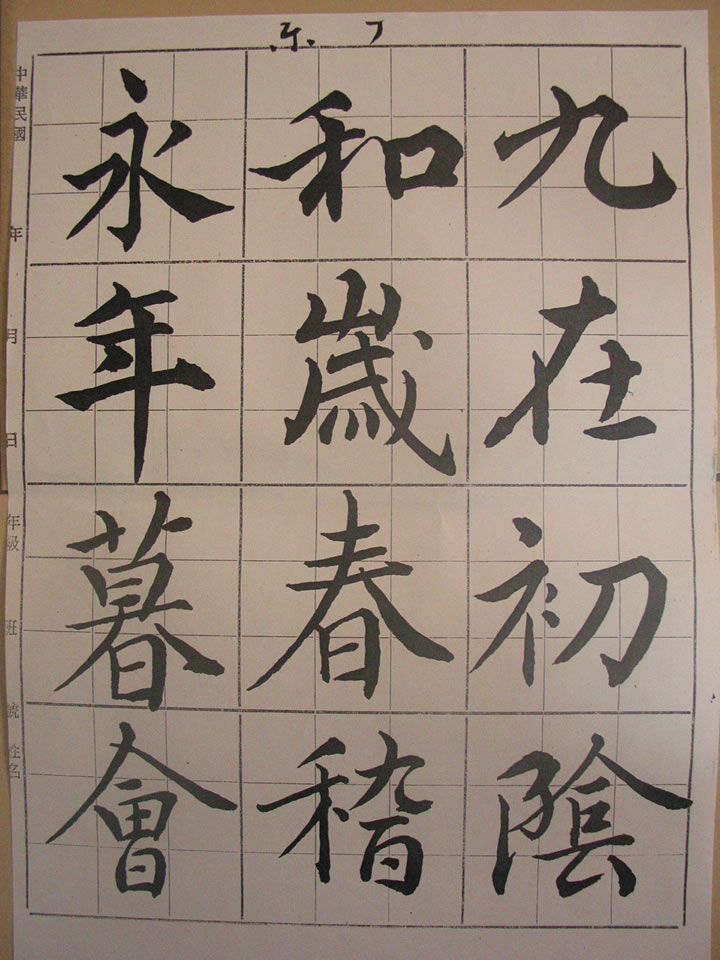 永和九
年歲在
暮春初
會稽陰
中華民國 年 月 日 年級 班 號 姓名